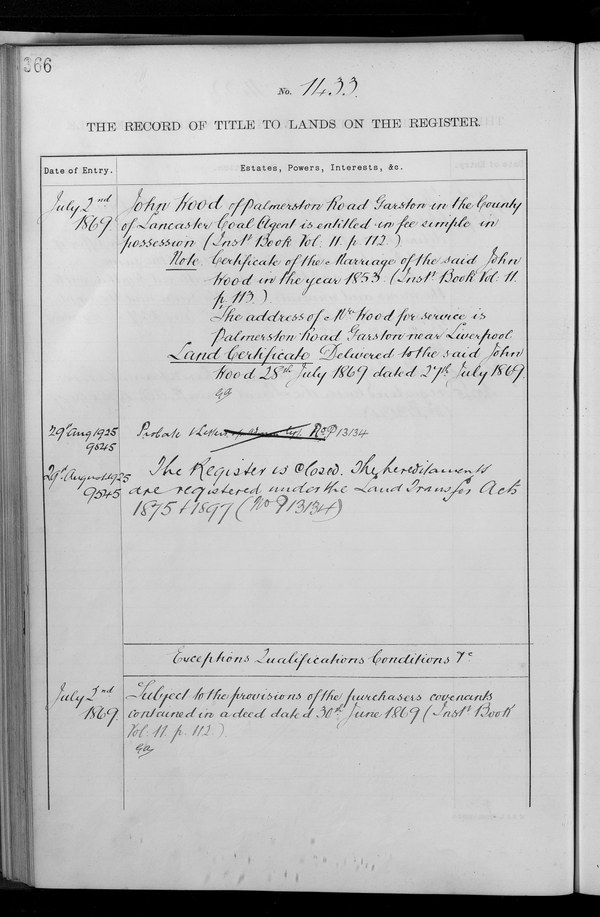 366
No. 1433.
THE RECORD OF TITLE TO LANDS ON THE REGISTER.
Date of Entry.
Estates, Powers, Interests, &c.
July 2nd
1869
John Wood of Palmerston Road Garston in the County
of Lancaster Coal Agent is entitled in fee simple in
possession (Inst Book Vol. 11. p. 112.)
Note. Certificate of the Marriage of the said John
Wood in the year 1853. (Inst Book Vol. 11.
p. 113.)
The address of Mr Wood for service is
Palmerston Road Garston near Liverpool
Land Certificate Delivered to the said John
Wood 28th July 1869 dated 27th July 1869
29 Aug 1925
9545
Probate No P13134
29 August 1925
9545
The Register is closed. The hereditaments
are registered under the Land Transfer Acts
1875 & 1897 (No P13134)
Exceptions Qualifications Conditions &c
July 2nd
1869
Subject to the provisions of the purchasers covenants
contained in a deed dated 30th June 1869 (Inst Book
Vol. 11. p. 112.)